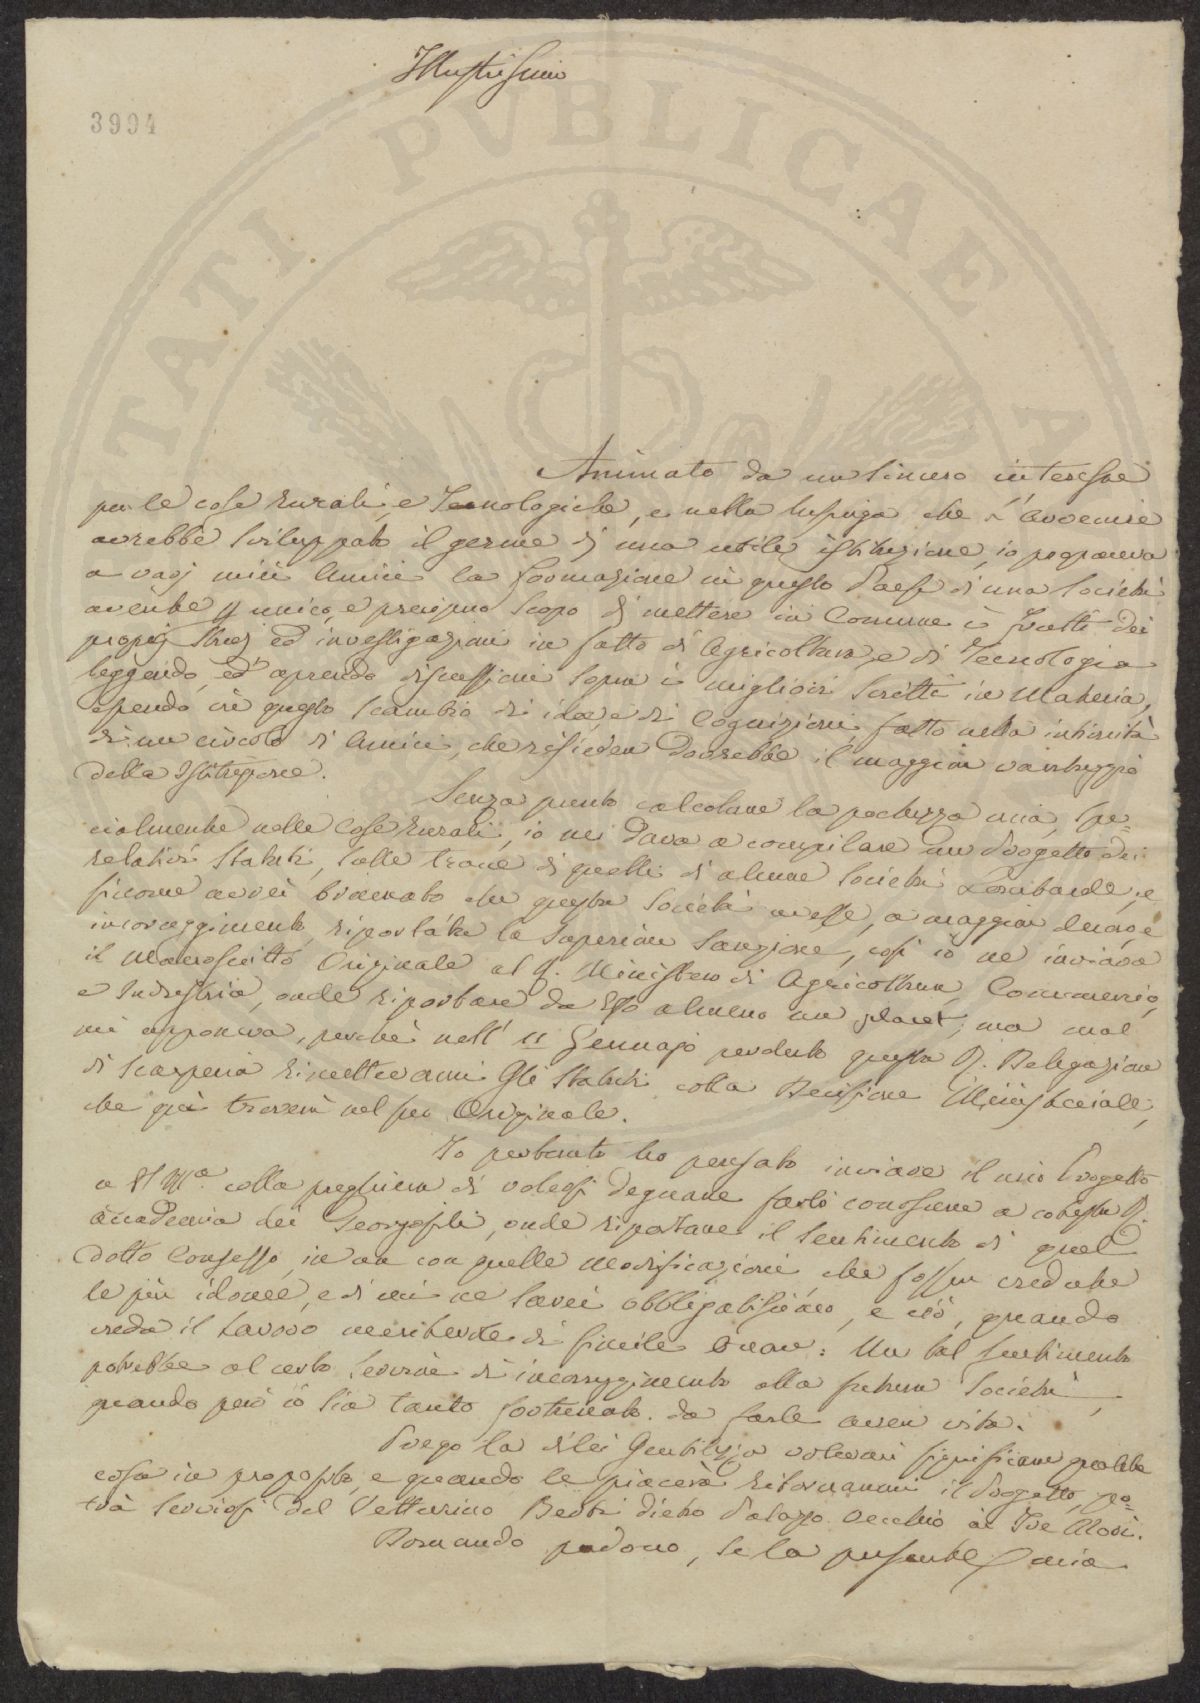 Illustrissimo
3994
Animato da un sincero interesse
per le cose rurali, e Tecnologiche, e nella lusinga che l'avvenire
avrebbe sviluppato il germe di una utile istituzione, io proponeva
a varj miei Amici la formazione in questo Paese di una Società
avente p unico, e precipuo scopo di mettere in Comune i frutti dei
proprj studj ed investigazioni in fatto di Agricoltura, e di Tecnologia
leggendo, ed aprendo discussioni sopra i migliori scritti in Materia,
essendo in questo scambio di idee, e di Cognizioni fatto nella intimità
di un circolo di Amici, che risieder dovrebbe il maggior vantaggio
della Istituzione.
Senza punto calcolare la pochezza mia, spe=
cialmente nelle cose rurali, io mi dava a compilare un Progetto dei
relativi Statuti, sulle tracce di quelli di alcune Società Lombarde, e
siccome avrei bramato che questa Società avesse, a maggior decoro, e
incoraggimento, riportata la Superiore Sanzione, così io ne inviava
il Manoscritto Originale al R. Ministero di Agricoltura, Commercio,
e Industria, onde riportare da Esso almeno un placet; ma mal
mi apponeva, perchè nell' 11 Gennajo perduto questa R. Delegazione
di Scarperia rimettevami Gli Statuti colla Decisione Ministeriale,
che qui troverà nel suo Originale.
Io pertanto ho pensato inviare il mio Progetto
a V.S. Ill.ma colla preghiera di volersi degnare farlo conoscere a cotesta R.
Accademia dei Georgofili, onde riportare il sentimento di quel
dotto Consesso, in un con quelle modificazioni che fosser credute
le più idonee, e di ciò ne sarei obbligatissimo, e ciò, quando
creda il lavoro meritevole di simile onore: Un tal sentimento
potrebbe al certo servire di incoraggimento alla futura Società,
quando però io sia tanto fortunato da farle aver vita.
Prego la di lei Gentilezza volermi significare qualche
cosa in proposito, e quando le piacerà ritornarmi il Progetto, po=
trà servirsi del Vetturino Berti dietro Palazzo Vecchio ai Tre Mori.
Domando perdono, se la presente mia